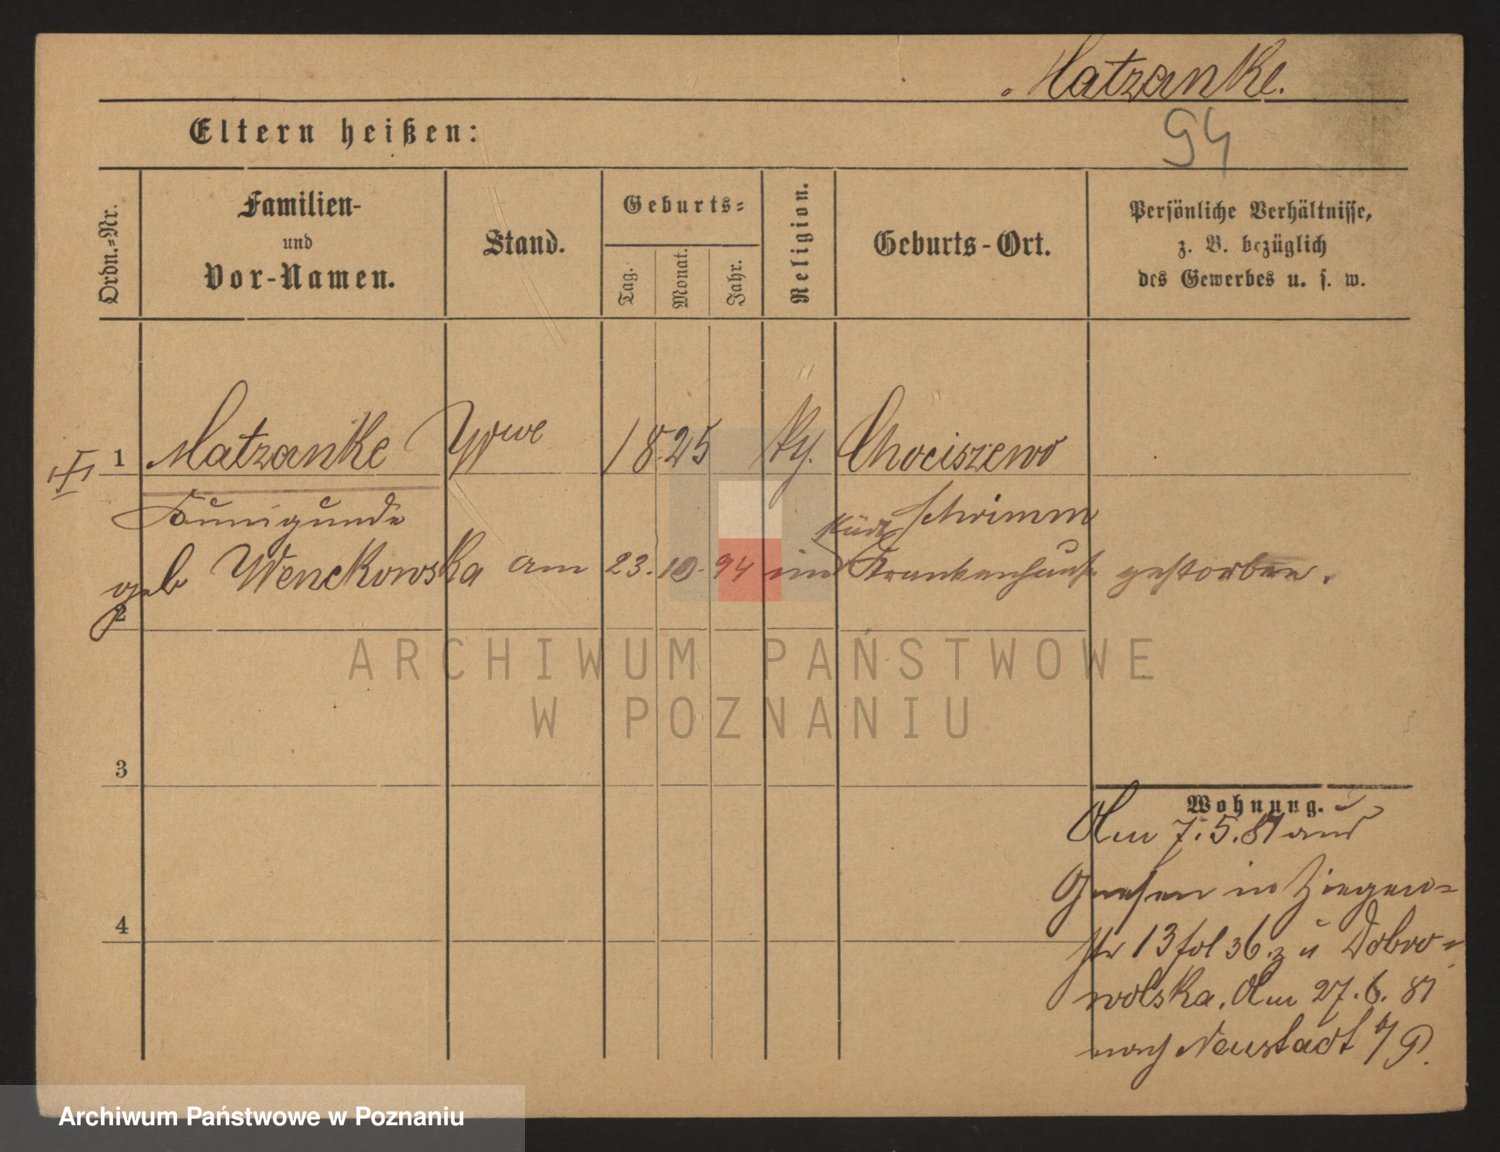 Matzanke.
94
Eltern heißen:
Ordn.=Nr.
Familien-
und
Vor-Namen.
Stand.
Geburts=
Tag.
Monat.
Jahr.
Religion.
Geburts-Ort.
Persönliche Verhältnisse,
z. B. bezüglich
des Gewerbes u. s. w.
1 Matzanke Wwe 1825 Chociszewo
Kunigunde Schrimm
geb Wenckowska am 23. 10. 94 im Krankenhause gestorben.
2
ARCHIWUM PAŃSTWOWE
W POZNANIU
3
Wohnung.
Am 7. 5. 81 aus
Gnesen in Ziegen=
str 13 fol 36. z u Dobro=
wolska. Am 27. 6. 81
nach Neustadt
4
Archiwum Państwowe w Poznaniu